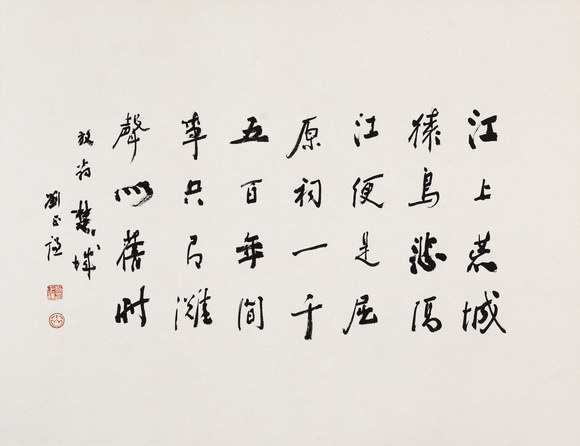 江上荒城
猿鳥悲隔
江便是屈
原祠一千
五百年間
事只有灘
聲似舊时
放翁楚城
劉正